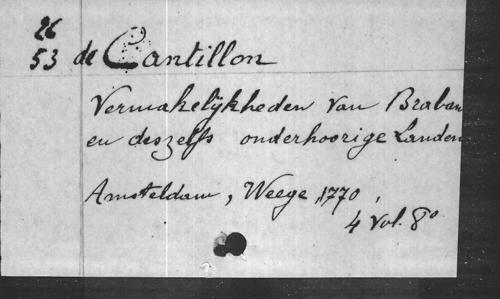 26
53 de Cantillon
Vermakelijkheden van Braban
en deszelfs onderhoorige Landen
Amsteldam, Weege, 1770,
4 vol. 8º